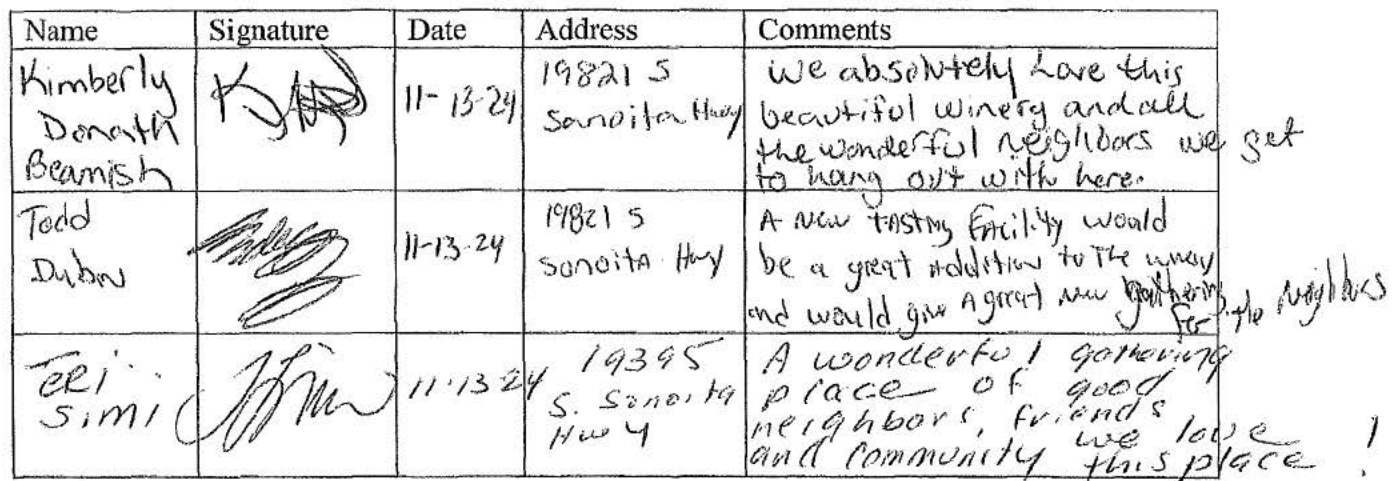 Name Signature Date Address Comments
Kimberly
Donath
Beamish
11-13-24
19821 S
Sonoita Hwy
We absolutely Love this
beautiful winery and all
the wonderful neighbors we get
to hang out with here.
Todd
11-13-24
19821 S
Sonoita Hwy
A New tasting Facility would
be a great addition to The winery
and would give A great new gathering
for the Neighbors
Teri
Simi
11-13-24
19395
S. Sonoita
Hwy
A wonderful gathering
place of good
neighbors, friends
and community we love
this place !